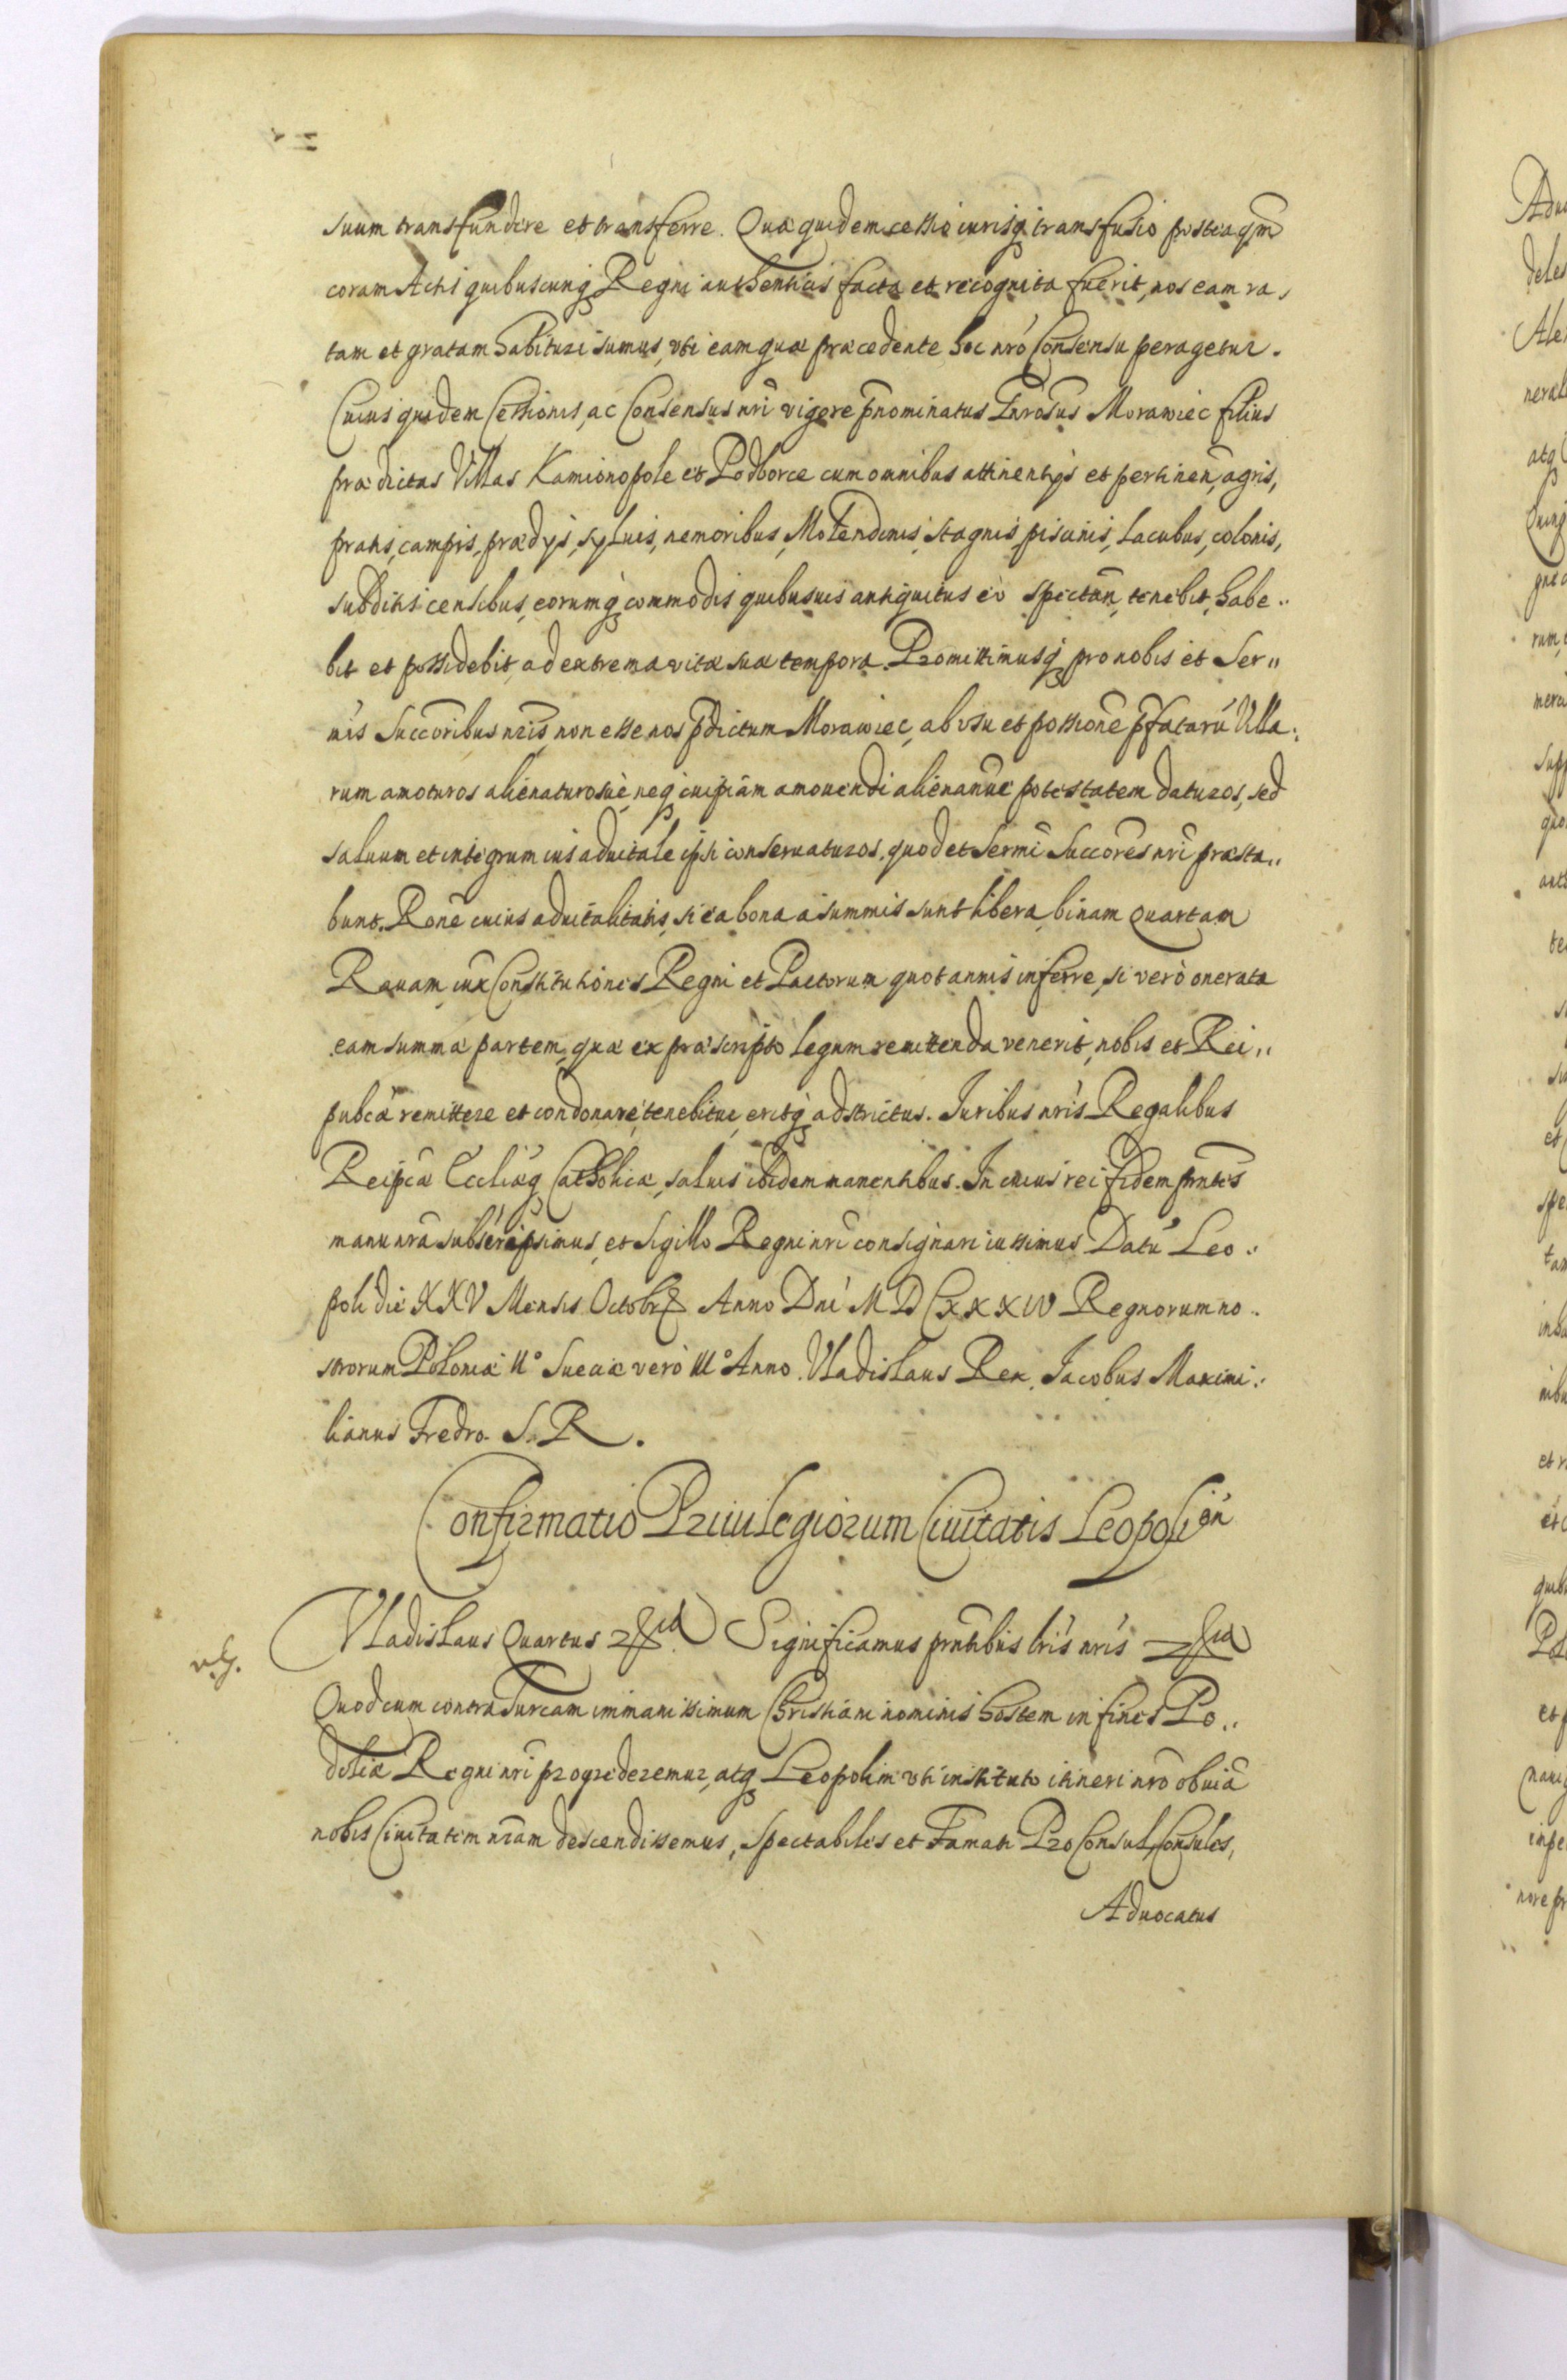 suum transfundere et transferre. Quæ quidem cessio iurisq transfusio posteaqm̃
coram Actis quibuscunq Regni authenticis facta et recognita fuerit, nos eam ra,
tam et gratam habituri sumus, vti eam quæ præcedente hoc nrõ Consensu peragetur.
Cuius quidem Cessionis, ac Consensus nri vigore pñominatus Morawiec filius
prædictas Villas Kamionopole et Podborce cum omnibus attinentijs et pertinen̄, agris,
pratis, campis, prædijs, syluis, nemoribus, Molendinis, stagnis, piscinis, Lacubus, colonis,
subditis censibus, eorumq commodis quibusuis antiquitus eò spectan̄, tenebit, habe..
bit et possidebit, ad extrema vitæ suæ tempora. Promittimusq pro nobis et Ser,,
mis Succoribus nris, non esse nos pdictum Morawiec, ab vsu et possione pfatarũ Villa:
rum amoturos alienaturosuè, neq cuipiam amouendi alienandiue potestatem daturos, sed
saluum et integrum ius aduitale ipsi conseruaturos, quod et Sermi Succores nri præsta,,
bunt. Rone cuius aduitalitatis, si ea bona a summis sunt libera, binam Quartam
Rauam iux Constitutiones Regni et Pactorum quotannis inferre, si verò onerata
eam summæ partem, quæ ex præscripto legum remittenda venerit, nobis et Rei,,
pubcæ remittere et condonare, tenebitur, eritq adstrictus. Juribus nris Regalibus
Reipcæ Eccliæq Catholicæ, saluis ibidem manentibus. In cuius rei fidem pntes
manu nra subscripsimus, et Sigillo Regni nri consignari iussimus Datũ Leo..
poli die XXV Mensis Octobr Anno Dni M D C XXXIV Regnorum no..
strorum Poloniæ IIº Sueciæ verò IIIº Anno. Vladislaus Rex. Jacobus Maximi:
lianus Fredro. S. R.
Confirmatio Priuilegiorum Ciuitatis Leopolien̄
Vladislaus Quartus Significamus pntibus lris nris
Quod cum contra Turcam immanissimum Christiani nominis hostem in fines Po..
doliæ Regni nri progrederemur, atq Leopolim vti instituto itineri nro obuiã
nobis Ciuitatem nram descendissemus, Spectabiles et Famati ProConsul, Consules,
Aduocatus